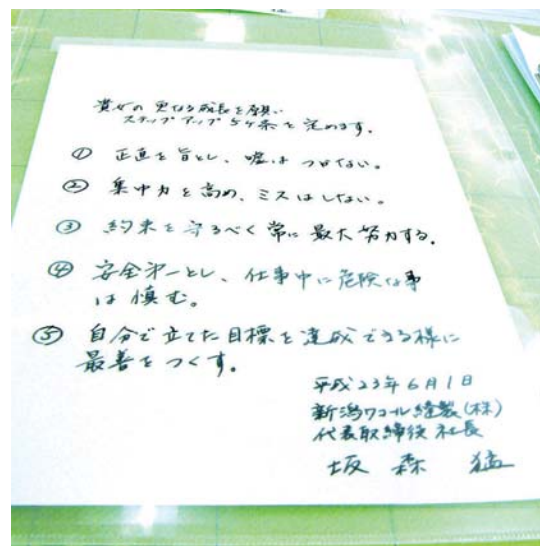 貴女の更なる成長を願い
ステップアップ5ヶ条を定めます。
① 正直を旨とし、嘘はつかない。
② 集中力を高め、ミスはしない。
③ 約束を守るべく常に最大努力する。
④ 安全第一とし、仕事中に危険な事
は慎む。
⑤ 自分で立てた目標を達成できる様に
最善をつくす。
平成23年6月1日
新潟ワコール縫製(株)
代表取締役 社長
坂森 猛